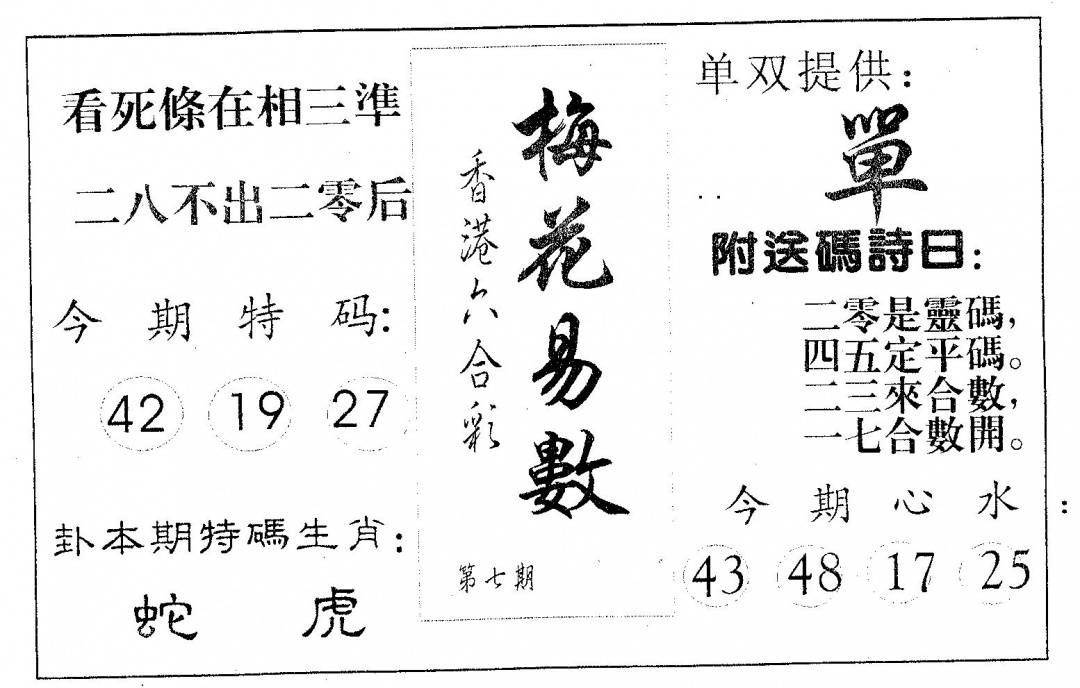 看死條在相三準
二八不出二零后
今期特码:
42 19 27
卦本期特碼生肖:
蛇 虎
梅花易數
香港六合彩
第七期
单双提供:
單
附送碼詩曰:
二零是靈碼,
四五定平碼。
二三來合數,
一七合數開。
今期心水:
43 48 17 25